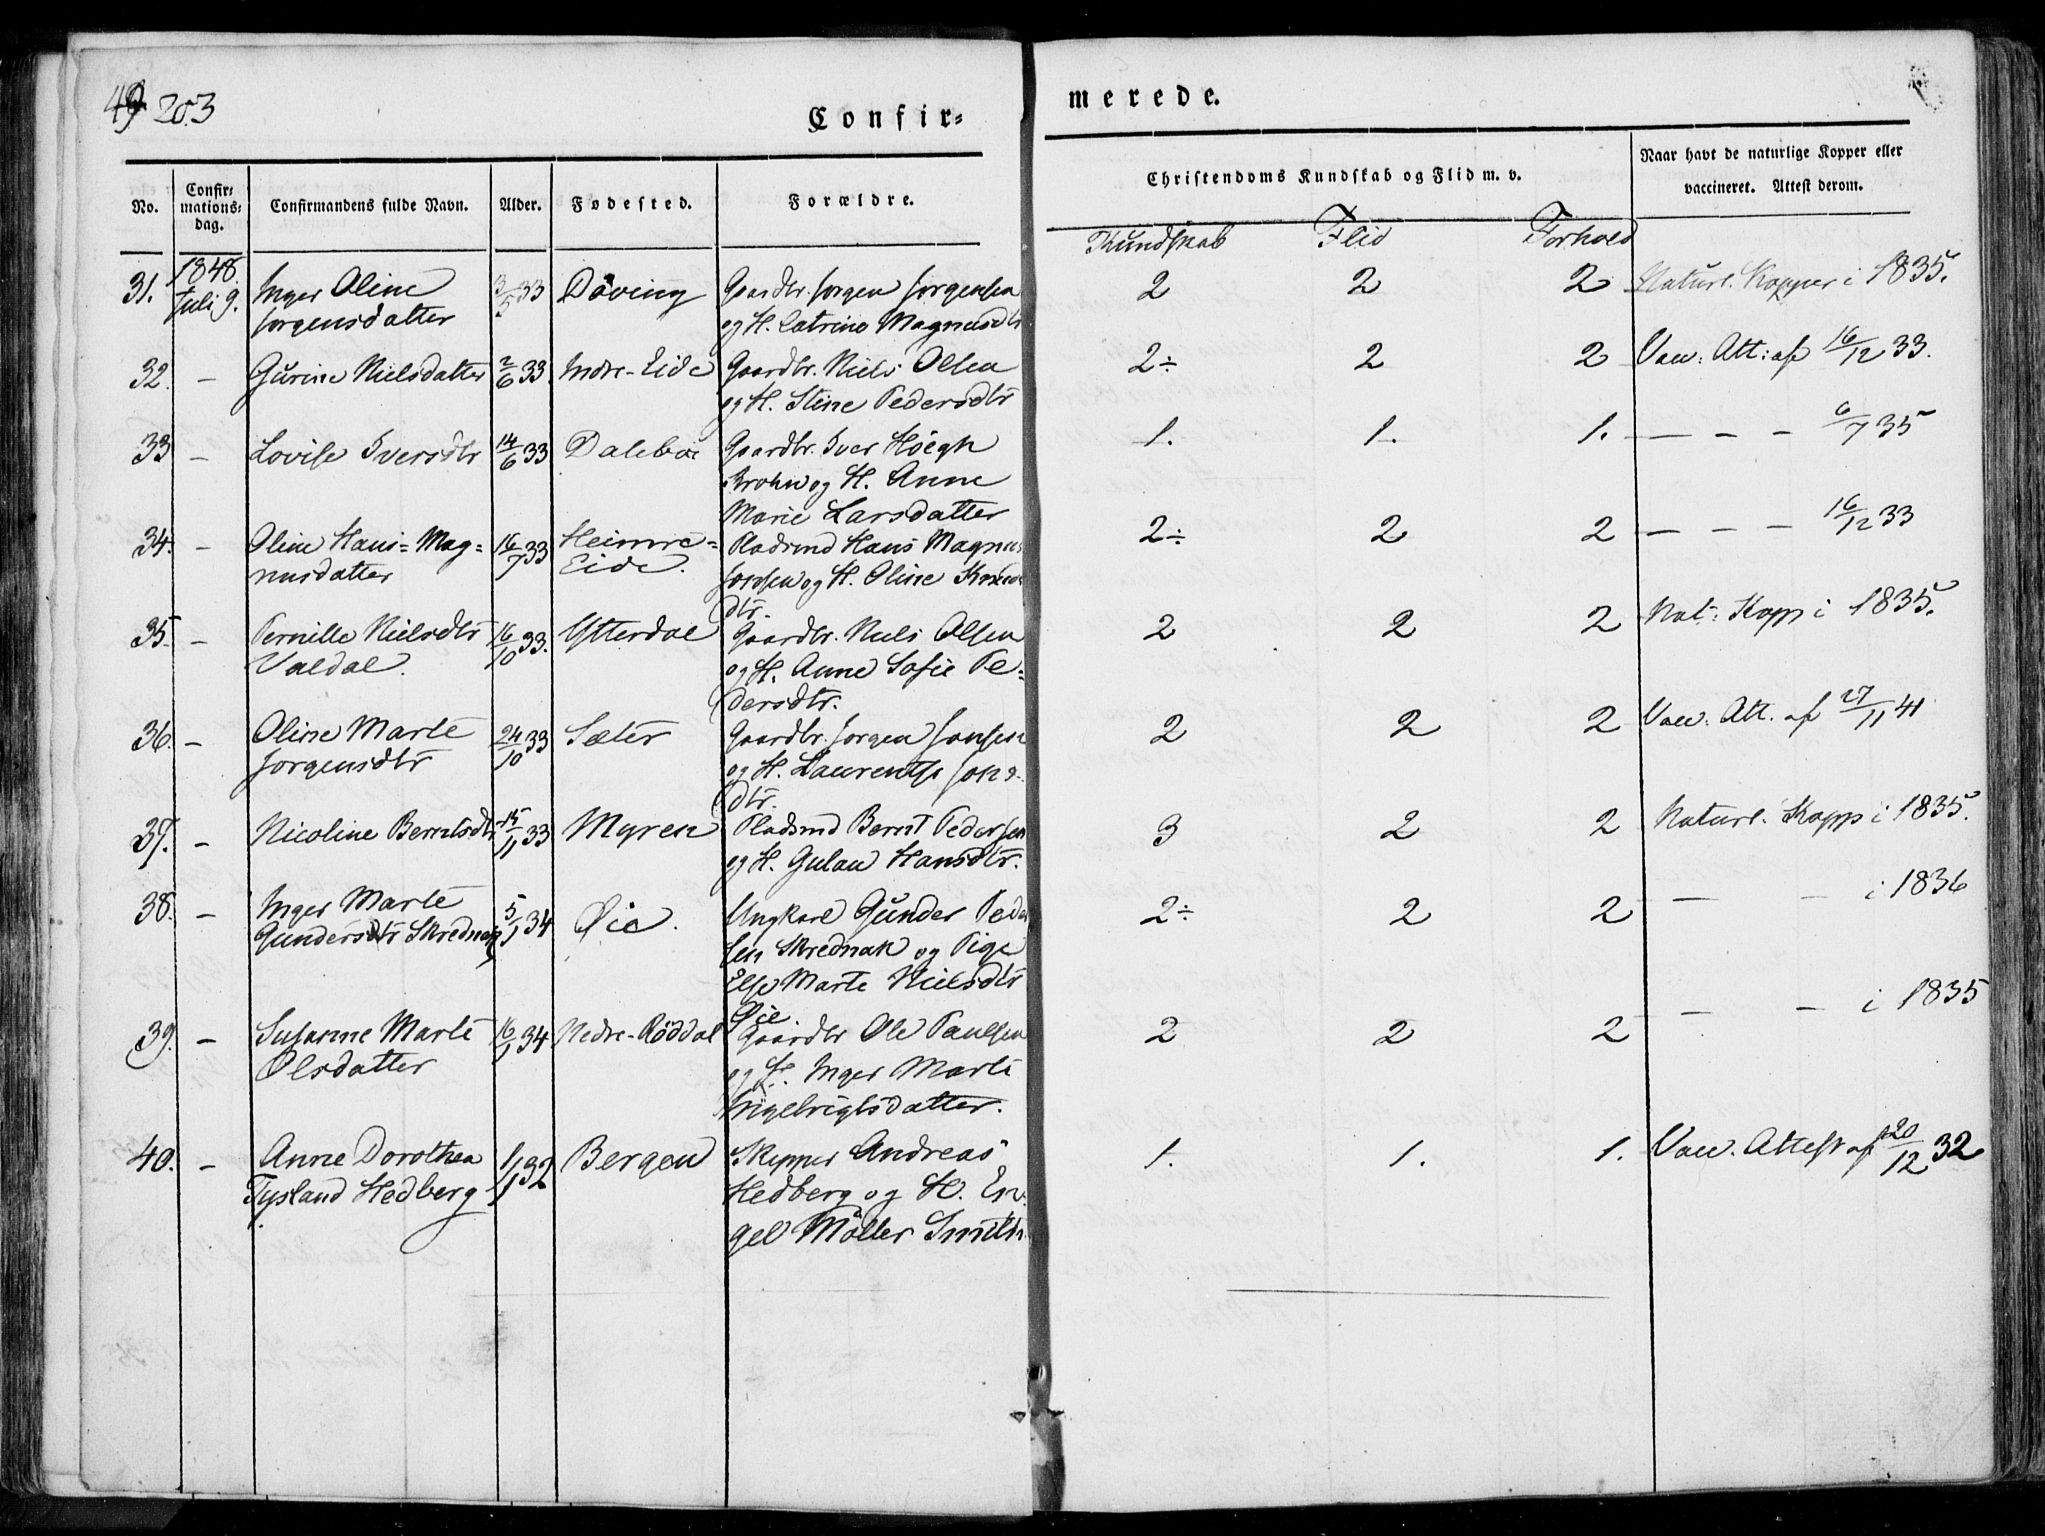 203
Confir-
merede.
No.
Confir-
mations-
dag.
Confirmandens fulde Navn.
Alder.
Fødested.
Forældre.
Christendoms Kundskab og Flid m. v.
Naar havt de naturlige Kopper eller
vaccineret. Attest derom.
Kundskab Flid Forhold
31. 1848. Juli 9. Inger Oline 3/5 33 Döving Gaardbr. Jorgen Jorgensen 2 2 2 Naturl. Kopper i 1835.
Jorgensdatter og H. Catrine Magnusdtr
32. — Gurine Nielsdatter 2/6 33. Indre-Eide Gaardbr. Niels Olsen 2÷ 2 2 Vacc: Att: af 16/12 33.
og H. Stine Pedersdtr
33 — Lovise Iversdtr 14/6 33 Daleböe Gaardbr. Iver Höegh 1. 1. 1. — — — 6/7 35
Brohn og H. Anne
Marie Larsdatter
34. — Oline Hans-Mag- 16/7 33 Heimre- Pladsmd Hans Magnus 2÷ 2 2 — — — 16/12 33
nusdatter Eide. og H. Oline
dtr.
35. — Pernille Nielsdtr 16/10 33. Ytterdal Gaardbr. Niels Olsen 2 2 2 Nat: Kopp i 1835.
Valdal. og H. Anne Sofie Pe-
dersdtr.
36. — Oline Marte 24/10 33 Sæter Gaardbr. Jorgen Jonsen 2 2 2 Vacc: Att. af 27/11 41
Jorgensdtr og H. Laurentse Jons-
dtr.
37. — Nicoline Berntsdtr 15/11 33 Myren Pladsmd Bernt Pedersen 3 2 2 Naturl. Kopp i 1835.
og H. Gulau Hansdtr.
38. — Inger Marte 5/1 34 Øie. Ungkarl Gunder Peder 2÷ 2 2 — — i 1836
Gundersdtr Skrednak sen Skrednak og Pige
Else Marte Nielsdtr
Øie
39. — Susanne Marte 16/1 34. Nedre-Røddal Gaardbr Ole Paulsen 2 2 2 — — i 1835
Olsdatter og H. Inger Marte
Ingebrigtsdatter.
40. — Anne Dorothea 1/1 32 Bergen Skipper Andreas 1. 1. 1. Vacc. Attest af 20/12 32
Tysland Hedberg Hedberg og H. En-
gel Möller Smith